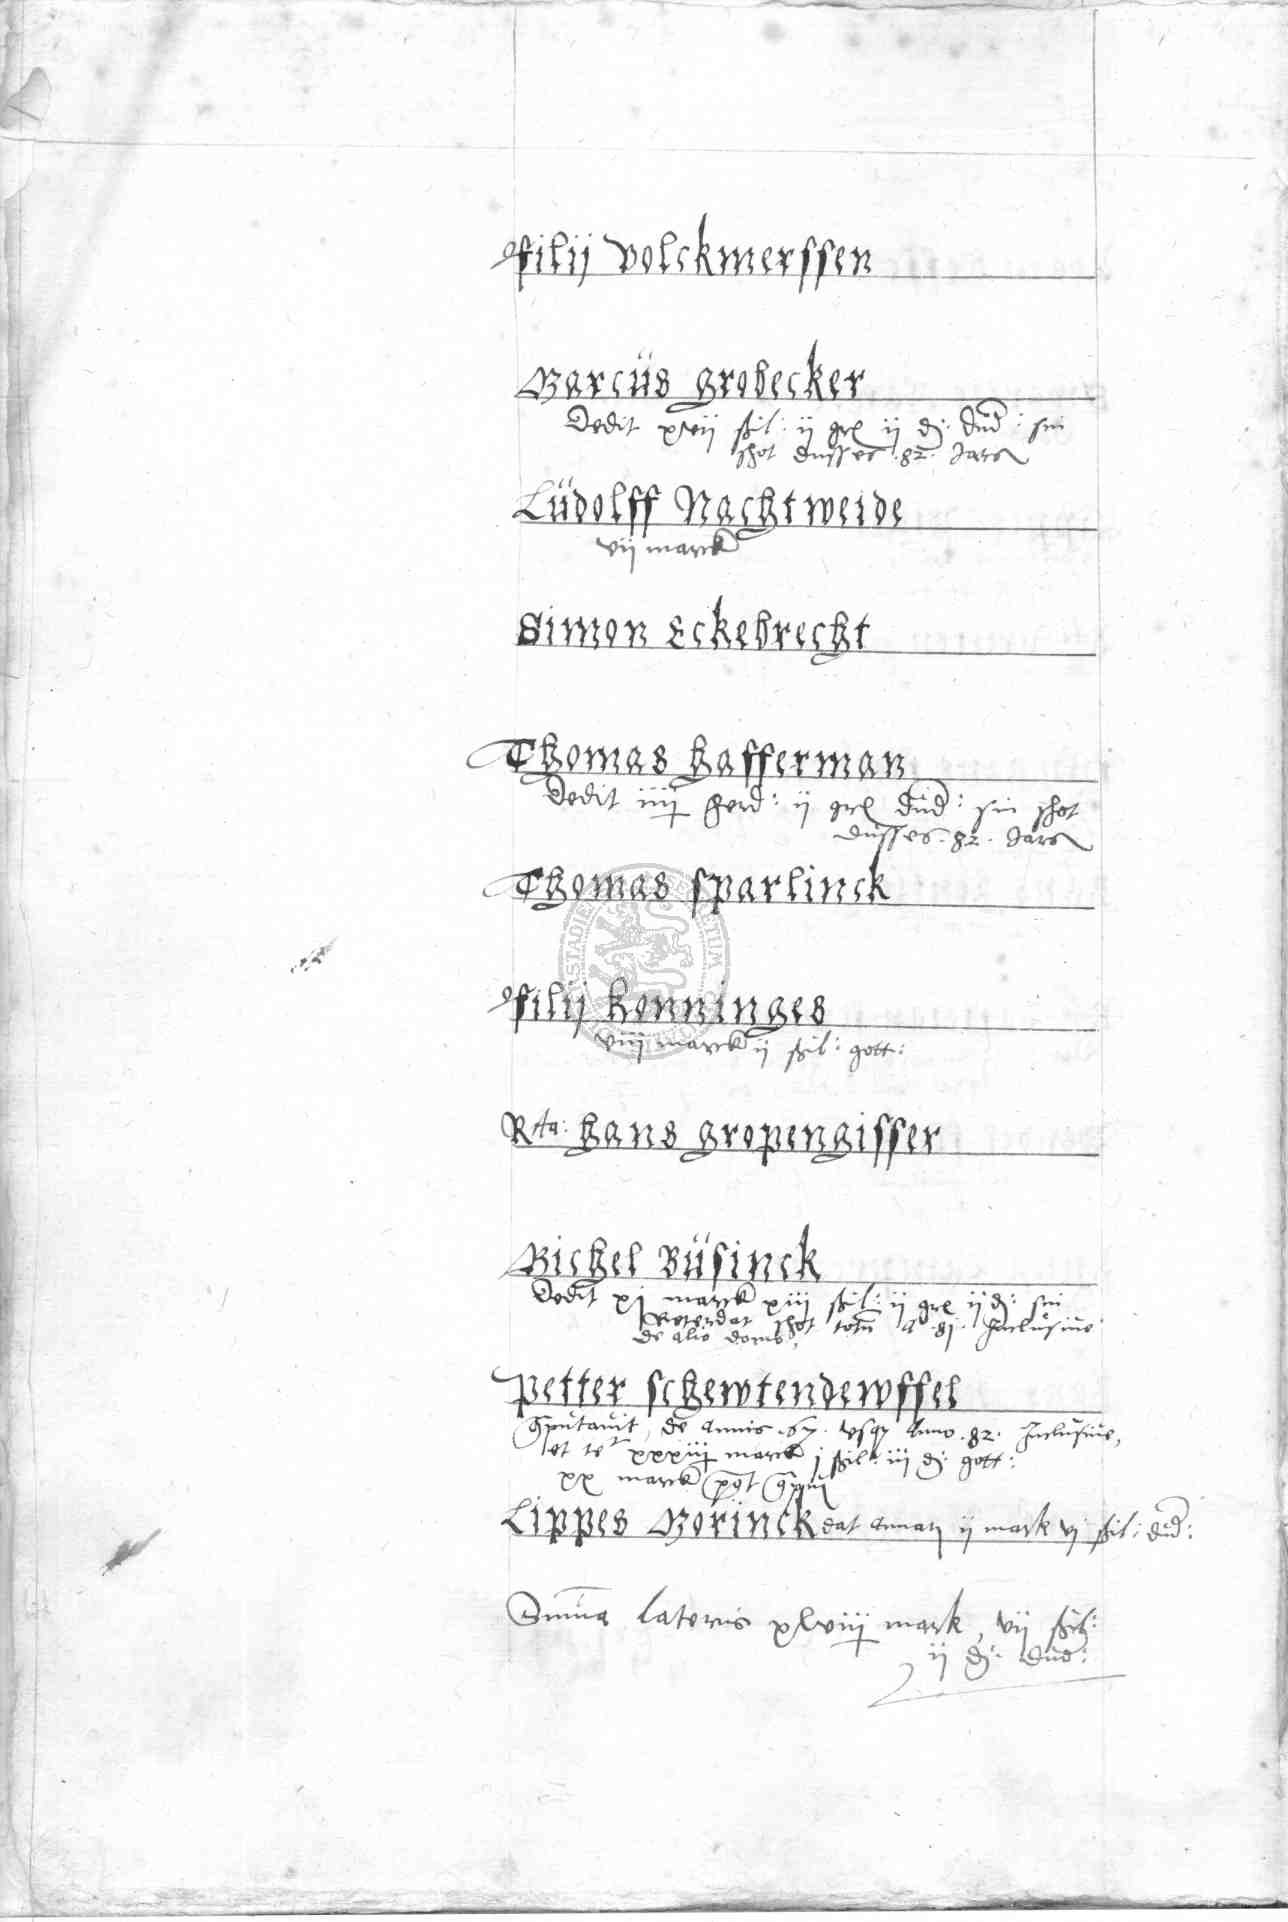 filij Volckmerssen
Marcüs grobecker
Dedit xvij ßil: ij grl ij dj: dnd: sin
shot dusses .82. Jars
Lüdolff Nachtweide
vij marck
Simon Eckebrecht
Thomas hafferman
Dedit iiij ferd: ij grl dnd: sin shot
dusses .82. Jars
Thomas sparlinck
filij henninges
viij marck ij ßil: gott:
Rta: hans gropengisser
Michel Büsinck
Dedit xj marck xiij ßil: ij grl ij dj: sin
shot 81. Inclusiue
de alio domo,
Petter schewtendewffel
de Annis .67. vsque Anno .82. Inclusiue,
et xxxiij marck j ßil: iij dj: gott:
xx marck
Lippes Morinck dat ij mark vj ßil: dnd:
Summa lateris xlviij mark, vij ßil:
ij dj: dnd: